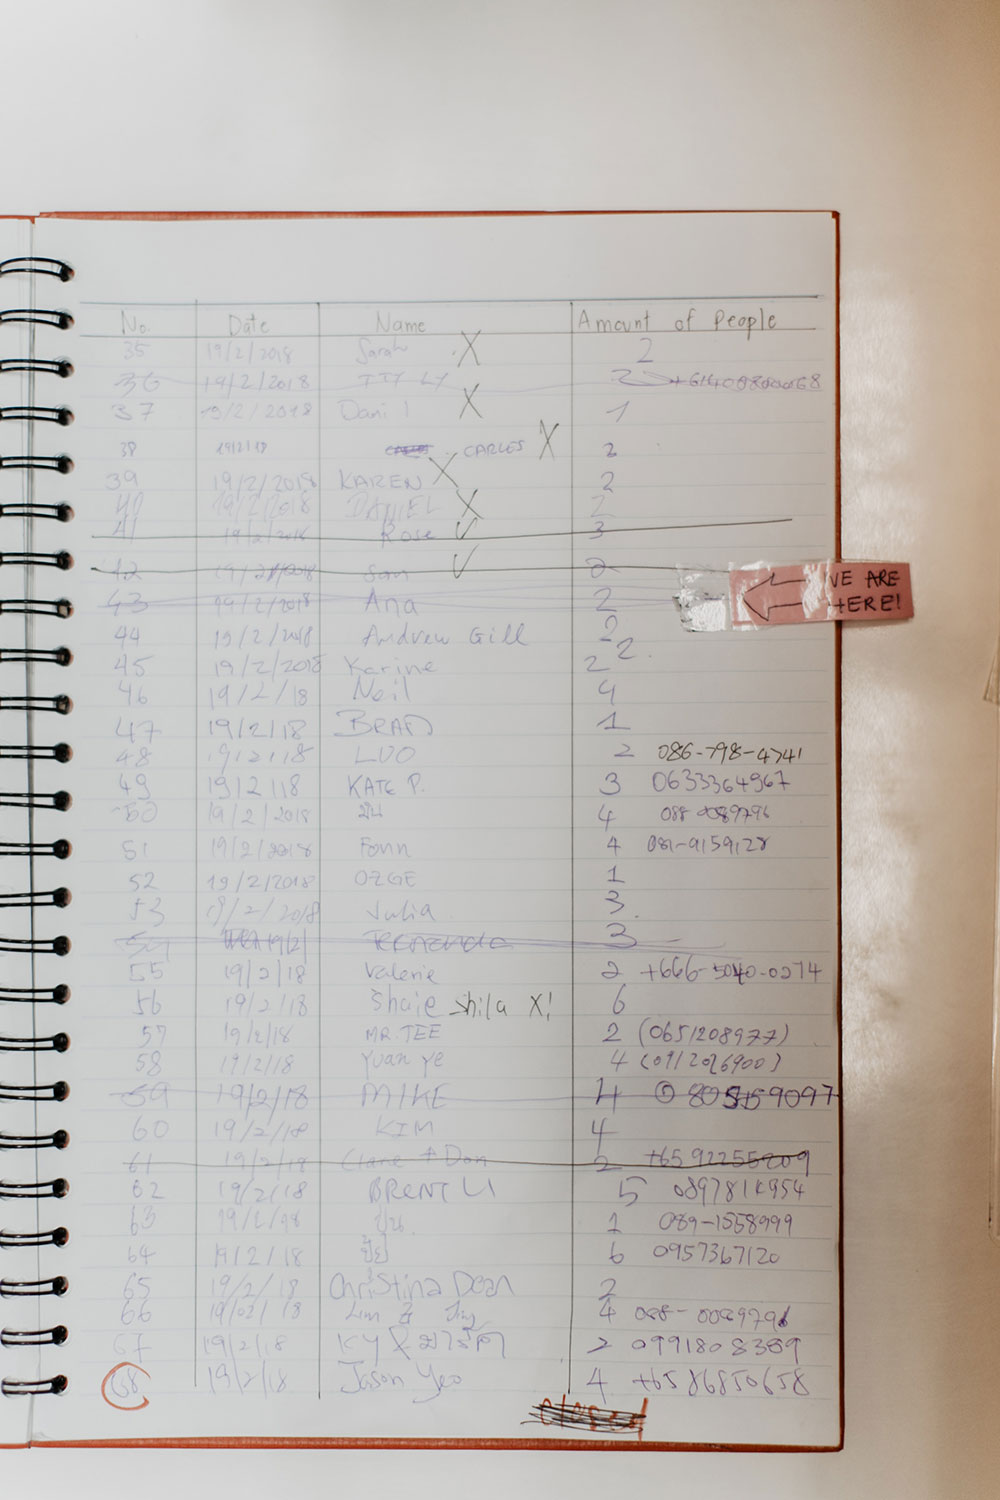 No. Date Name Amount of People
35 19/2/2018 Sarah X 2
36 19/2/2018 ITY LY 2
37 19/2/2018 Dani l X 1
38 19/2/18 CARLES X 2
39 19/2/2018 KAREN X 2
40 19/2/2018 DANIEL X 2
41 19/2/2018 Rose ✓ 3
42 19/2/2018 San ✓ 2
WE ARE
HERE!
43 19/2/2018 Ana 2
44 19/2/2018 Andrew Gill 2
45 19/2/2018 Karine 2 2.
46 19/2/18 Neil 4
47 19/2/18 BRAD 1
48 19/2/18 LUO 2 086-798-4741
49 19/2/18 KATE P. 3 0633364967
50 19/2/2018 มิน 4 088 0089796
51 19/2/2018 Fonn 4 081-9159128
52 19/2/2018 OZGE 1
53 19/2/2018 Julia 3
54 19/2/ Fernanda 3
55 19/2/18 Valerie 2 +666-5040-0274
56 19/2/18 Shaie Shila X! 6
57 19/2/18 MR.TEE 2 (0651208977)
58 19/2/18 Yuan Ye 4 (0912026900)
59 19/2/18 MIKE 4
60 19/2/18 KIM 4
61 19/2/18 Clare + Dan 2 +6592255209
62 19/2/18 BRENT LI 5 0897814954
63 19/2/18 ปุ่น 1 089-1558999
64 19/2/18 6 0957367120
65 19/2/18 Christina Dean 2
66 19/02/18 Lim & Jing 4 088-0089796
67 19/2/18 KY & 2 0991808389
68 19/2/18 Jason Yeo 4 +65 86850658
closed